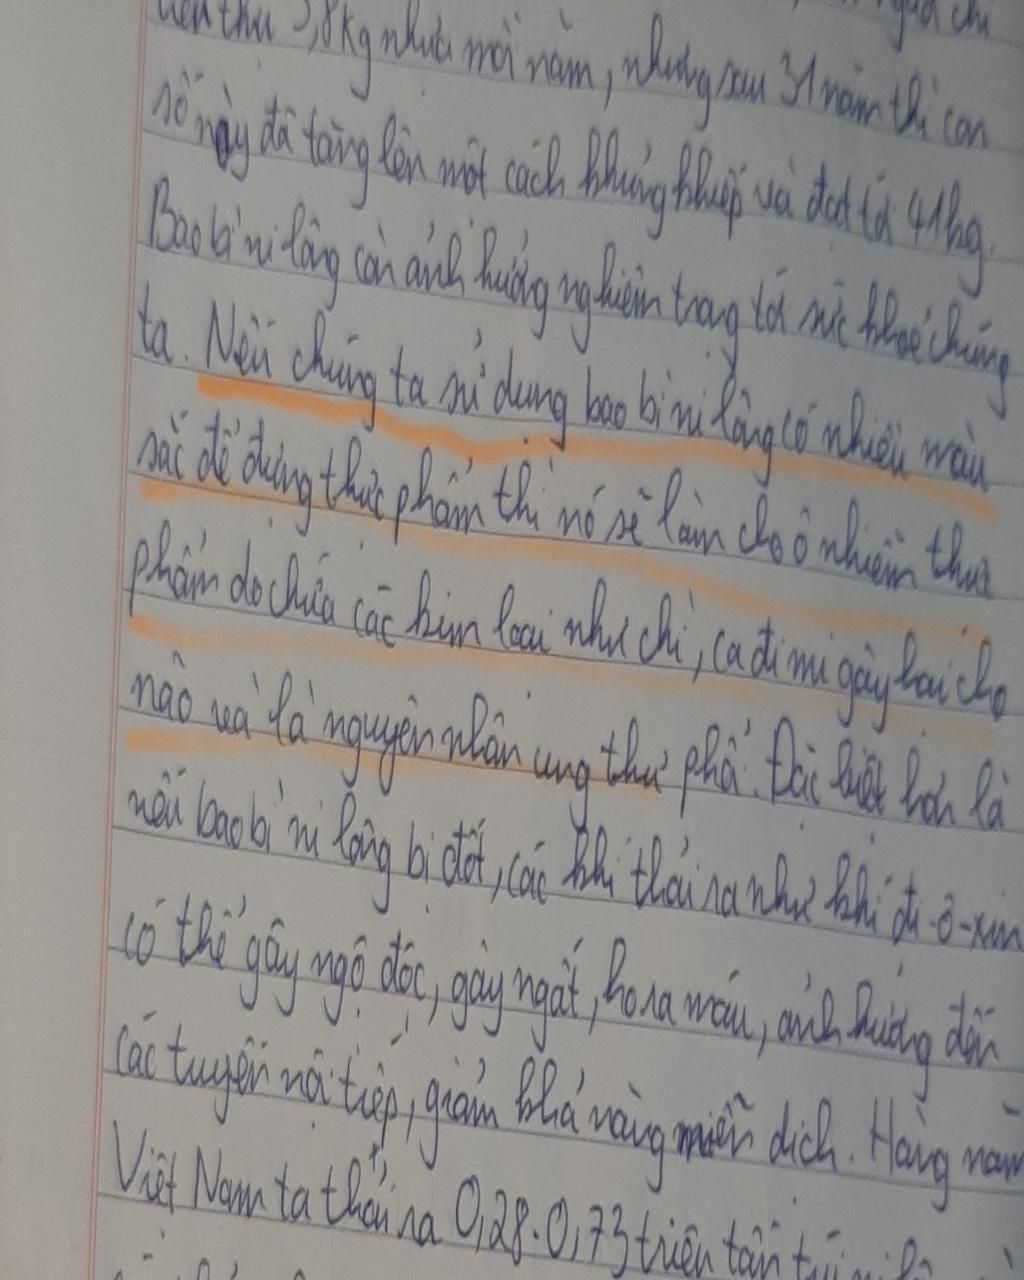 thụ 3,8kg nhựa mỗi năm, nhưng sau 31 năm thì con
số này đã tăng lên một cách khủng khiếp và đạt tới 41kg.
Bao bì ni lông còn ảnh hưởng nghiêm trọng tới sức khoẻ chúng
ta. Nếu chúng ta sử dụng bao bì ni lông có nhiều màu
sắc để đựng thực phẩm thì nó sẽ làm cho ô nhiễm thực
phẩm do chứa các kim loại như chì, ca đi mi gây hại cho
não và là nguyên nhân ung thư phổi. Đặc biệt hơn là
nếu bao bì ni lông bị đốt, các khí thải ra như khí đi-ô-xin
có thể gây ngộ độc, gây ngất, ho ra máu, ảnh hưởng đến
các tuyến nội tiếp, giảm khả năng miễn dịch. Hàng năm
Việt Nam ta thải ra 0,28-0,73 triệu tấn